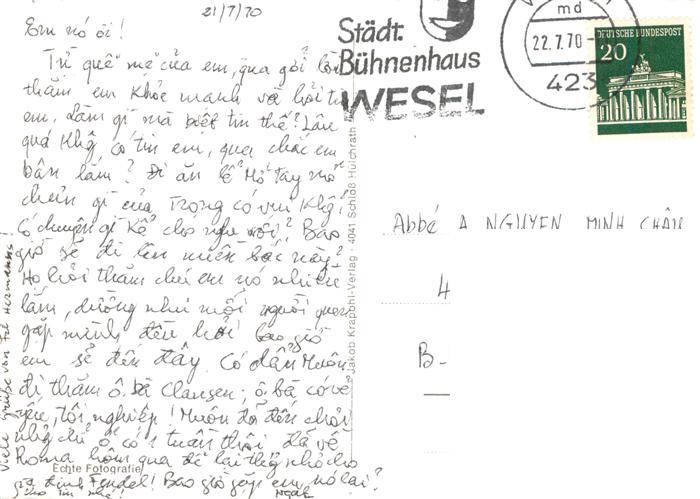 21/7/70
Em nó ơi!
Từ quê mẹ của em, qua gởi lời
thăm em khỏe mạnh và hỏi tin
em. Làm gì mà biệt tin thế? Lâu
quá không có tin em, qua chắc em
bận lắm? Đi ăn lễ Mở Tay
gì của Trọng có vui không?
Có chuyện gì kể cho nghe với? Bao
giờ sẽ đi lên miền bắc này?
Họ hỏi thăm chú em nó nhiều
lắm, dường như mỗi người quen
gặp mình đều hỏi bao giờ
em sẽ đến đây. Có dẫn Mườn
đi thăm ô. bà Clausen; ô. bà có vẻ
yếu, tội nghiệp! Mườn đã đến chơi
nhưng chỉ ở có 1 tuần thôi đã về
Roma hôm qua để lại nhớ cho
gia đình Fendel! Bao giờ gặp em nó lại?
Viele Grüße von
Echte Fotografie
Jakob Krapohl-Verlag · 4041 Schloß Hülchrath
Städt.
Bühnenhaus
WESEL
md
22.7.70
423
DEUTSCHE BUNDESPOST
20
Abbé A NGUYEN MINH CHÂU
4
B-